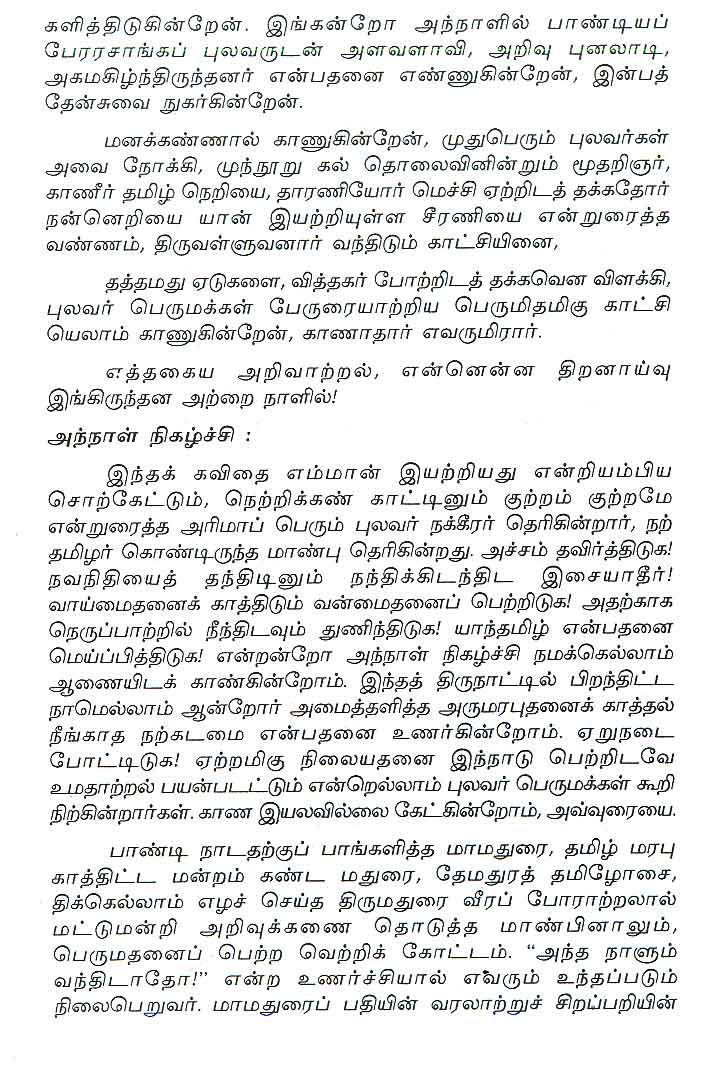 களித்திடுகின்றேன். இங்கன்றோ அந்நாளில் பாண்டியப்
பேரரசாங்கப் புலவருடன் அளவளாவி, அறிவு புனலாடி,
அகமகிழ்ந்திருந்தனர் என்பதனை எண்ணுகின்றேன், இன்பத்
தேன்சுவை நுகர்கின்றேன்.
மனக்கண்ணால் காணுகின்றேன், முதுபெரும் புலவர்கள்
அவை நோக்கி, முந்நூறு கல் தொலைவினின்றும் மூதறிஞர்,
காணீர் தமிழ் நெறியை, தாரணியோர் மெச்சி ஏற்றிடத் தக்கதோர்
நன்னெறியை யான் இயற்றியுள்ள சீரணியை என்றுரைத்த
வண்ணம், திருவள்ளுவனார் வந்திடும் காட்சியினை,
தத்தமது ஏடுகளை, வித்தகர் போற்றிடத் தக்கவென விளக்கி,
புலவர் பெருமக்கள் பேருரையாற்றிய பெருமிதமிகு காட்சி
யெலாம் காணுகின்றேன், காணாதார் எவருமிரார்.
எத்தகைய அறிவாற்றல், என்னென்ன திறனாய்வு
இங்கிருந்தன அற்றை நாளில்!
அந்நாள் நிகழ்ச்சி :
இந்தக் கவிதை எம்மான் இயற்றியது என்றியம்பிய
சொற்கேட்டும், நெற்றிக்கண் காட்டினும் குற்றம் குற்றமே
என்றுரைத்த அரிமாப் பெரும் புலவர் நக்கீரர் தெரிகின்றார், நற்
தமிழர் கொண்டிருந்த மாண்பு தெரிகின்றது. அச்சம் தவிர்த்திடுக!
நவநிதியைத் தந்திடினும் நந்திக்கிடந்திட இசையாதீர்!
வாய்மைதனைக் காத்திடும் வன்மைதனைப் பெற்றிடுக! அதற்காக
நெருப்பாற்றில் நீந்திடவும் துணிந்திடுக! யாந்தமிழ் என்பதனை
மெய்ப்பித்திடுக! என்றன்றோ அந்நாள் நிகழ்ச்சி நமக்கெல்லாம்
ஆணையிடக் காண்கின்றோம். இந்தத் திருநாட்டில் பிறந்திட்ட
நாமெல்லாம் ஆன்றோர் அமைத்தளித்த அருமரபுதனைக் காத்தல்
நீங்காத நற்கடமை என்பதனை உணர்கின்றோம். ஏறுநடை
போட்டிடுக! ஏற்றமிகு நிலையதனை இந்நாடு பெற்றிடவே
உமதாற்றல் பயன்படட்டும் என்றெல்லாம் புலவர் பெருமக்கள் கூறி
நிற்கின்றார்கள். காண இயலவில்லை கேட்கின்றோம், அவ்வுரையை.
பாண்டி நாடதற்குப் பாங்களித்த மாமதுரை, தமிழ் மரபு
காத்திட்ட மன்றம் கண்ட மதுரை, தேமதுரத் தமிழோசை,
திக்கெல்லாம் எழச் செய்த திருமதுரை வீரப் போராற்றலால்
மட்டுமன்றி அறிவுக்கணை தொடுத்த மாண்பினாலும்,
பெருமதனைப் பெற்ற வெற்றிக் கோட்டம். “அந்த நாளும்
வந்திடாதோ!” என்ற உணர்ச்சியால் எவரும் உந்தப்படும்
நிலைபெறுவர். மாமதுரைப் பதியின் வரலாற்றுச் சிறப்பறியின்